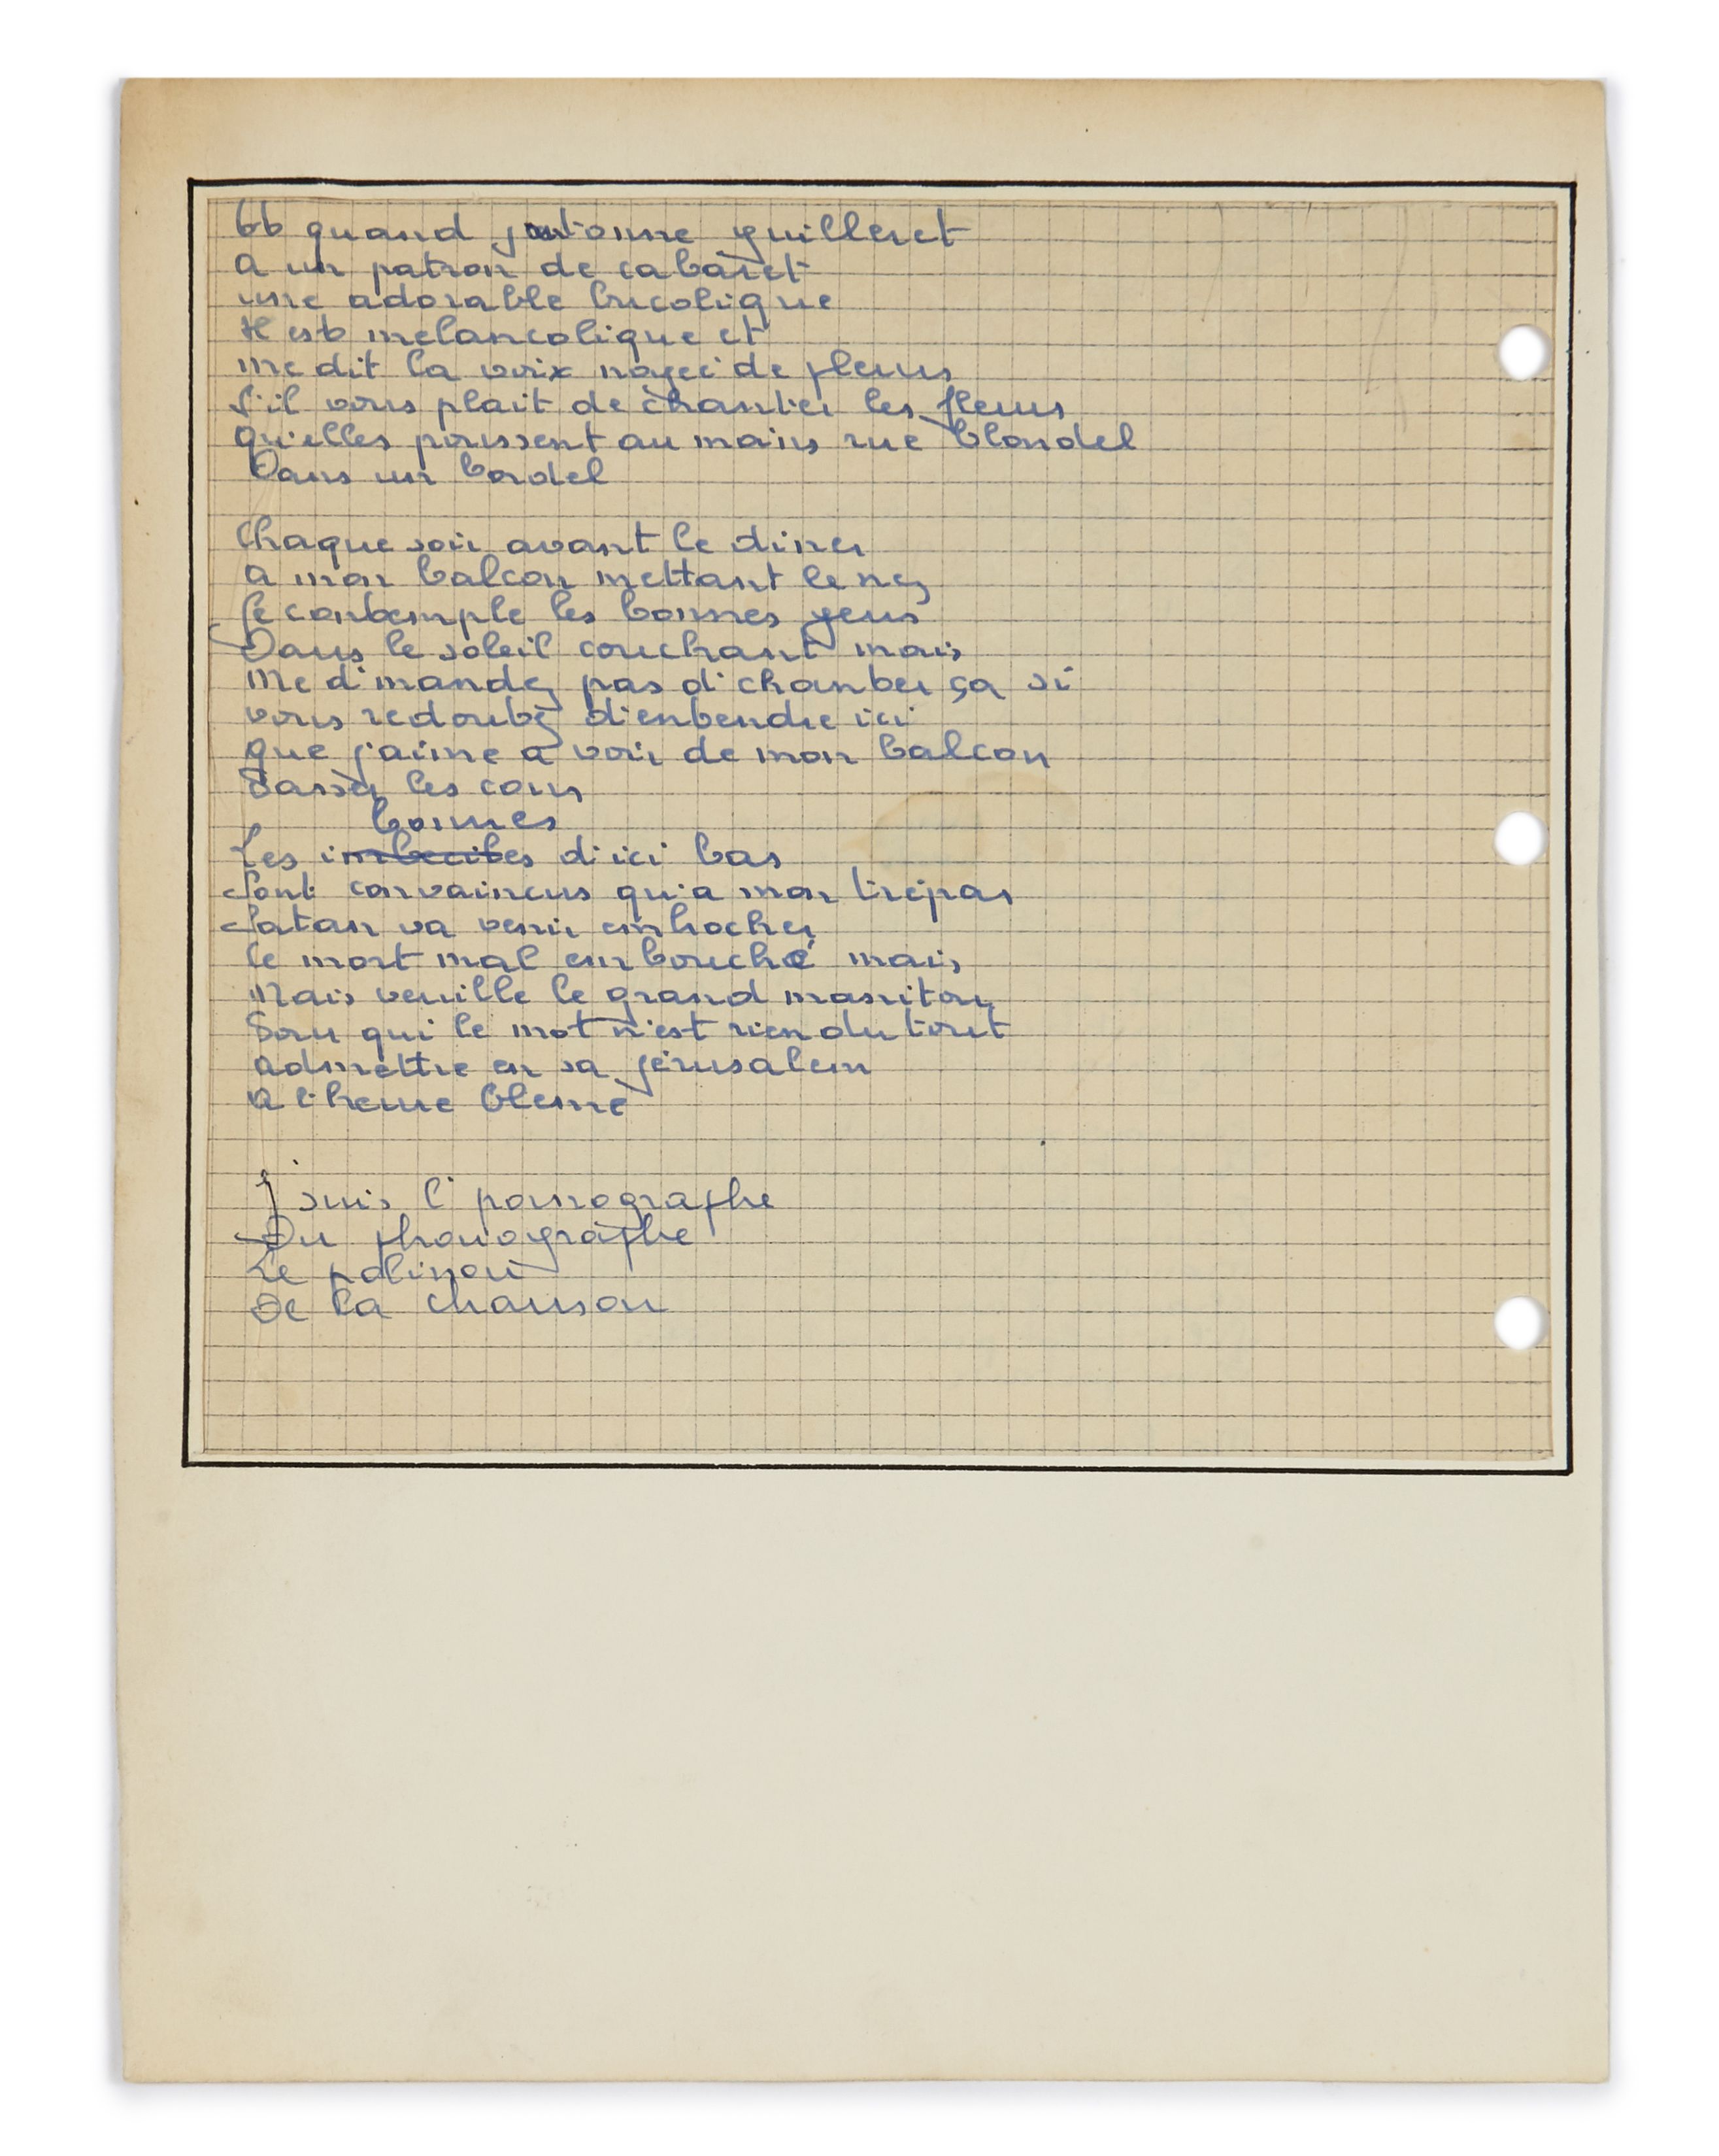 Et quand j'entonne guilleret
a un patron de cabaret
une adorable bucolique
Il est melancolique et
me dit la voix noyee de pleurs
S'il vous plait de chanter les fleurs
qu'elles poussent au moins rue blondel
Dans un bordel

Chaque soir avant le diner
a mon balcon mettant le nez
je contemple les bonnes gens
Dans le soleil couchant mais
me d'mandez pas d'chanter ça si
vous redoutez d'entendre ici
que j'aime a voir de mon balcon
Passer les cons
bonnes
Les imbeciles d'ici bas
Sont convaincus qu'a mon trépas
Satan va venir embrocher
le mort mal embouché mais
Mais veuille le grand manitou
Pour qui le mot n'est rien du tout
admettre en sa jérusalem
a l'heure bleme

J'suis l'pornographe
Du phonographe
Le polisson
De la chanson